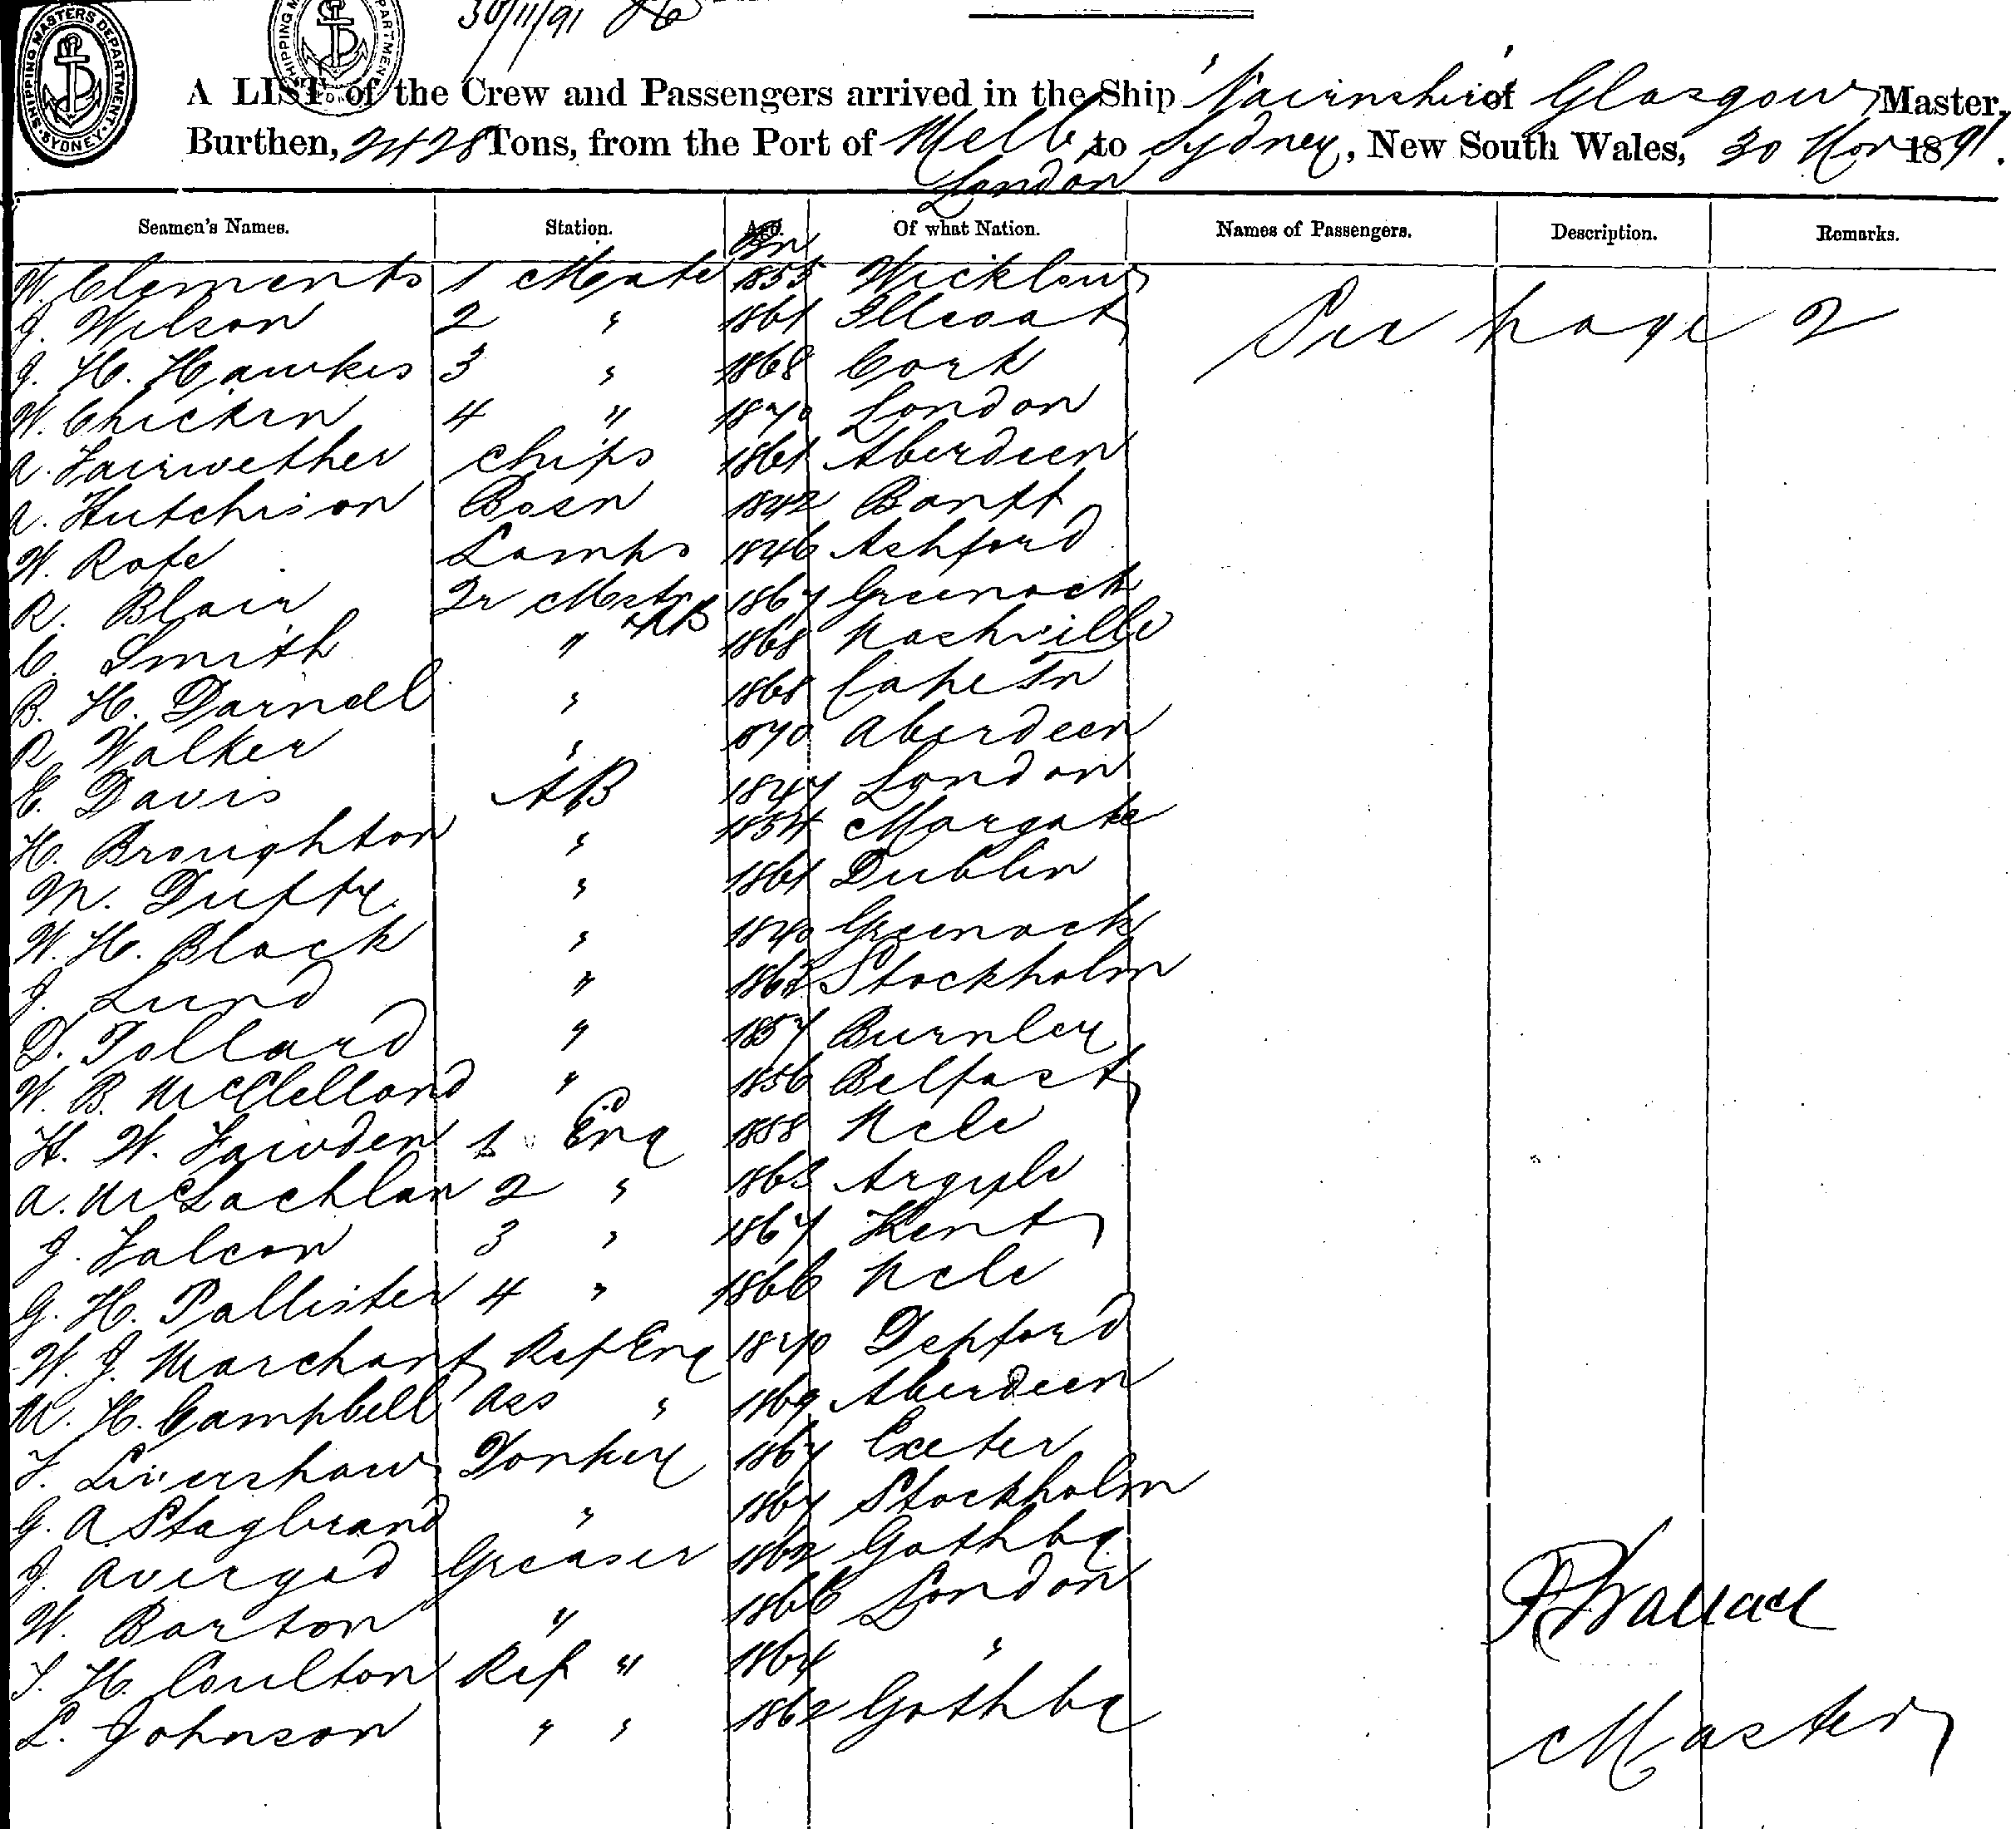 SHIPPING MASTERS DEPARTMENT. SYDNEY.
30/11/91
A LIST of the Crew and Passengers arrived in the Ship Nairnshire of Glasgow Master,
Burthen, 2428 Tons, from the Port of Melb to Sydney, New South Wales, 30 Nov 1891.
London
Seamen's Names. Station. Age. Of what Nation. Names of Passengers. Description. Remarks.
Bn
W. Clements 1 Mate 1855 Wicklow
J. Wilson 2 " 1861
See page 2
J. H. Hawkes 3 " 1868 Cork
W. Chicken 4 " 1870 London
A. Fairwether Chips 1861 Aberdeen
A. Hutchison Bosn 1842 Banff
W. Rofe Lamps 1846 Ashford
R. Blair Qr Mstr 1867 Greenock
C. Smith " AB 1868 Nashville
B. H. Darnell " 1868 Cape Tn
R. Walker " 1870 Aberdeen
E. Davis AB 1847 London
H. Broughton " 1854 Margate
M. Duffy " 1861 Dublin
W. H. Black " 1840 Greenock
J. Lund " Stockholm
D. Tollard " 1857 Burnley
W. B. McClelland " 1856 Belfast
H. W. 1 Eng 1858 Ncle
A. McLachlan 2 " 1863 Argyle
J. Falcon 3 " 1867 Kent
G. H. Pallister 4 " 1866 Ncle
W. J. Marchant Ref Eng 1870 Depford
M. H. Campbell Ass " 1869 Aberdeen
F. Livershaw Donkey 1867 Exeter
G. A Stagbrand " 1867 Stockholm
J. Avergad Greaser 1862 Gothbg
W. Barton " 1866 London
S. H. Coulton Ref " 1864 "
L. Johnson " " 1862 Gothbg
R Wallace
Master